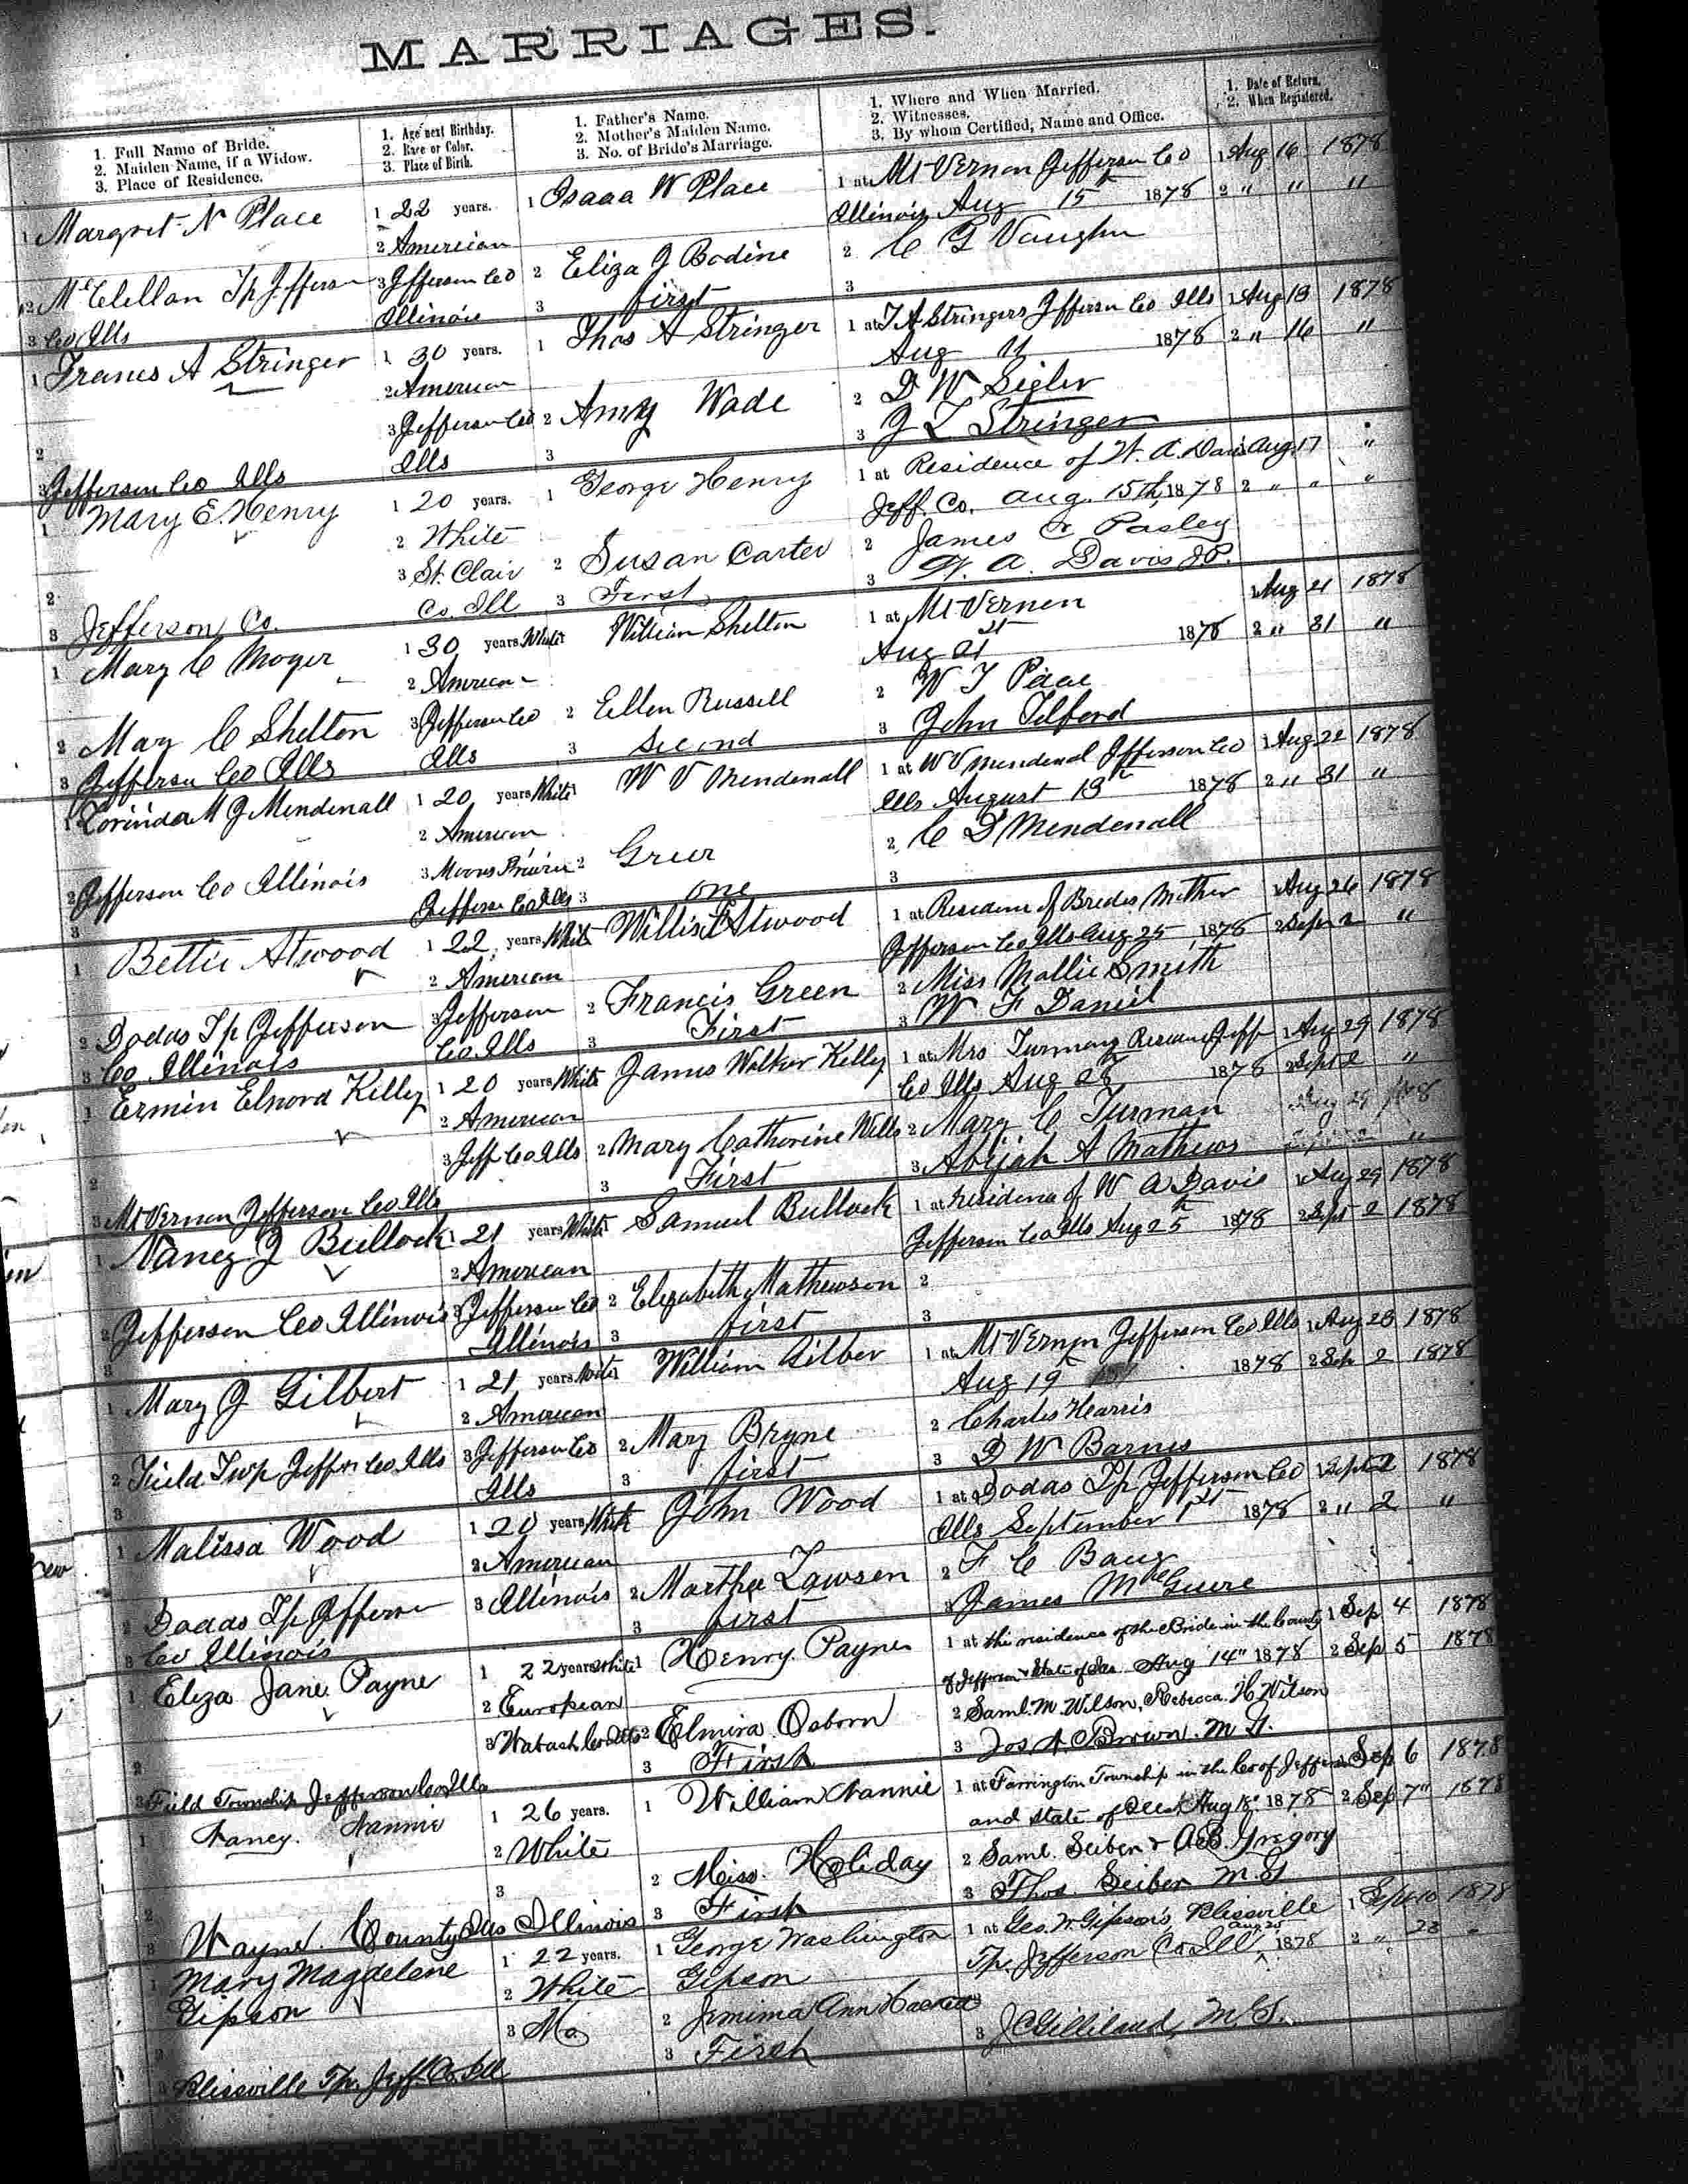 MARRIAGES.
1. Full Name of Bride.
2. Maiden Name, if a Widow.
3. Place of Residence.
1. Age next Birthday.
2. Race or Color.
3. Place of Birth.
1. Father's Name.
2. Mother's Maiden Name.
3. No. of Bride's Marriage.
1. Where and When Married.
2. Witnesses.
3. By whom Certified, Name and Office.
1. Date of Return.
2. When Registered.
1 Margret N Place
2 McClellan Tp Jefferson
3 Co Ills
1 22 years.
2 American
3 Jefferson Co
Illinois
1 Isaaa W Place
2 Eliza J Bodine
3 first
1 at Mt Vernon Jefferson Co
Illinois Aug 15th 1878
2 C G Vaughn
3
1 Aug 16 1878
2 " " "
1 Frances A Stringer
2
3 Jefferson Co Ills
1 30 years.
2 American
3 Jefferson Co
Ills
1 Thos A Stringer
2 Amy Wade
3
1 at T A Stringers Jefferson Co Ills
Aug 11 1878
2 D W Sigler
3 J L Stringer
1 Aug 13 1878
2 " 16 "
1 Mary E. Henry
2
3 Jefferson Co.
1 20 years.
2 White
3 St. Clair
Co. Ill
1 George Henry
2 Susan Carter
3 First
1 at Residence of W. A. Davis
Jeff. Co. Aug. 15th, 1878
2 James C Pasley
3 W. A. Davis J.P.
Aug. 17 "
2 " " "
1 Mary C Moyer
2 Mary C Shelton
3 Jefferson Co Ills
1 30 years White
2 American
3 Jefferson Co
Ills
William Shelton
2 Ellen Russell
3 Second
1 at Mt Vernon
Aug 21st 1878
2 W T Pace
3 John Telford
1 Aug 21 1878
2 " 31 "
1 Lorinda M J Mendenall
2 Jefferson Co Illinois
3
1 20 years White
2 American
3 Moores Prairie
Jefferson Co Ills
1 W V Mendenall
2 Greer
3 one
1 at W V Mendenal Jefferson Co
Ills August 13th 1878
2 C D Mendenall
3
1 Aug 22 1878
2 " 31 "
1 Bettie Atwood
2 Dodds Tp Jefferson
3 Co Illinois
1 22 years White
2 American
3 Jefferson
Co Ills
Willis Atwood
2 Francis Green
3 First
1 at Residence of Brides Mother
Jefferson Co Ills Aug 25 1878
2 Miss Mollie Smith
3 W F Daniel
1 Aug 26 1878
2 Sept 2 "
1 Ermin Elnora Kelly
2
3 Mt Vernon Jefferson Co Ills
1 20 years White
2 American
3 Jeff Co Ills
James Walker Kelly
2 Mary Catherine Wells
3 First
1 at Mrs Turmans Residence Jeff
Co Ills Aug 28 1878
2 Mary C Turman
3 Abijah A Mathews
1 Aug 29 1878
2 Sept 2 "
1 Nancy J Bullock
2 Jefferson Co Illinois
3
1 21 years White
2 American
3 Jefferson Co
Illinois
1 Samuel Bullock
2 Elizabeth Mathewson
3 first
1 at residence of W A Davis
Jefferson Co Ills Aug 25th 1878
2
3
1 Aug 29 1878
2 Sept 2 1878
1 Mary J Gilbert
2 Field Twp Jefferson Co Ills
3
1 21 years White
2 American
3 Jefferson Co
Ills
William Gilber
2 Mary Bryne
3 first
1 at Mt Vernon Jefferson Co Ills
Aug 19 1878
2 Charles Hearris
3 D W Barnes
1 Aug 23 1878
2 Sep 2 1878
1 Malissa Wood
2 Dodds Tp Jefferson
3 Co Illinois
1 20 years White
2 American
3 Illinois
John Wood
2 Martha Lawsen
3 first
1 at Dodds Tp Jefferson Co
Ills September 1st 1878
2 F C Baug
3 James McGuire
1 Sept 2 1878
2 " 2 "
1 Eliza Jane Payne
2
3 Field Township Jefferson Co Ills
1 22 years White
2 European
3 Wabash Co Ills
1 Henry Payne
2 Elmira Osborn
3 First
1 at the residence of the Bride in the County
of Jefferson & State of Ills Aug 14" 1878
2 Saml. M. Wilson, Rebecca H Wilson
3 Jos A Brown. M G.
1 Sep 4 1878
2 Sep 5 1878
1 Nancy. Nannie
2
3 Wayne County Ills
1 26 years.
2 White
3
Illinois
1 William Nannie
2 Miss. Holiday
3 First
1 at Farrington Township in the Co of Jefferson
and State of Ills Aug 18" 1878
2 Saml. Seiber & A B. Gregory
3 Thos. Seiber M. G
Sep 6 1878
2 Sep 7" 1878
1 Mary Magdelene
Gipson
2
3 Blissville Tp. Jeff. Co Ill
1 22 years.
2 White
3 Mo
1 George Washington
Gipson
2 Jemima Ann
3 First
1 at Geo. W. Gipson's, Blissville
Tp. Jefferson Co Ill, Aug 25 1878
3 J C Gilliland, M. G.
1 Sept 10 1878
2 " 23 "